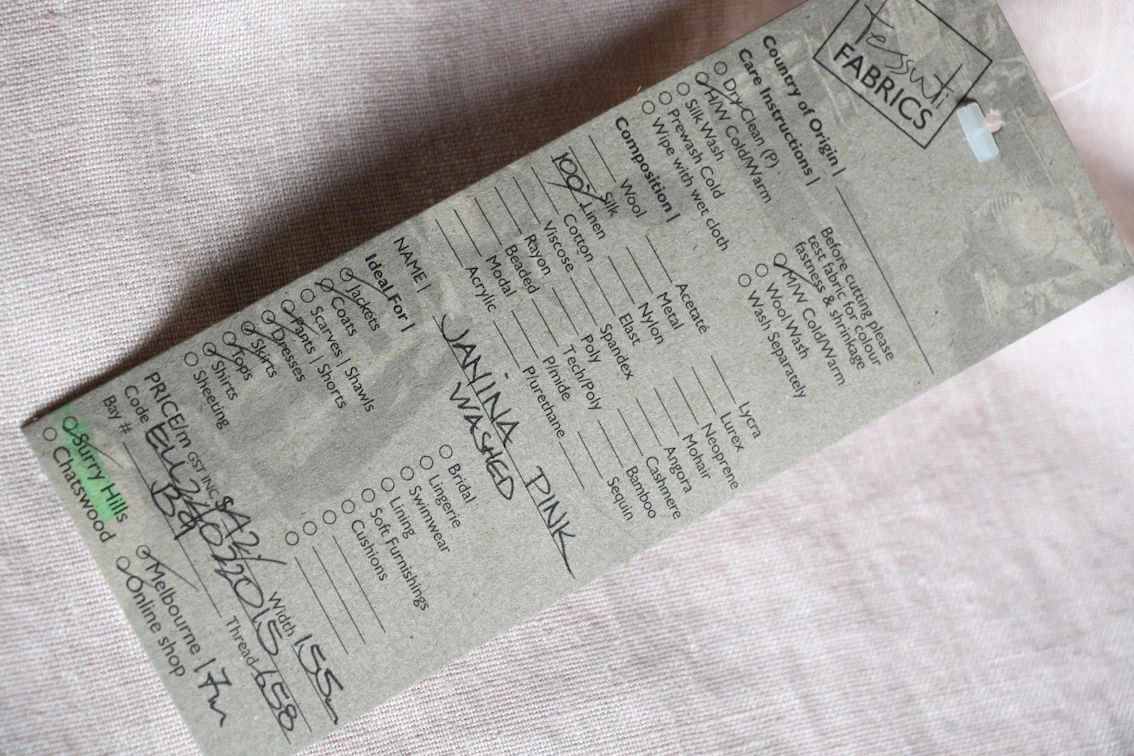 tessuti
FABRICS
Country of Origin |
Care Instructions |
Dry Clean (P)
H/W Cold/Warm
Silk Wash
Prewash Cold
Wipe with wet cloth
Before cutting please
test fabric for colour
fastness & shrinkage
M/W Cold/Warm
Wool Wash
Wash Separately
Composition |
Wool
Silk
100% Linen
Cotton
Viscose
Rayon
Beaded
Modal
Acrylic
Acetate
Metal
Nylon
Elast
Spandex
Poly
Tech/Poly
P/mide
P/urethane
Lycra
Lurex
Neoprene
Mohair
Angora
Cashmere
Bamboo
Sequin
NAME | JANINA PINK
WASHED
Ideal For |
Jackets
Coats
Scarves | Shawls
Pants | Shorts
Dresses
Skirts
Tops
Shirts
Sheeting
Bridal
Lingerie
Swimwear
Lining
Soft Furnishings
Cushions
PRICE/m GST INC $ Width 155
Code Thread 658
Bay # B9
Surry Hills
Chatswood
Melbourne 17m
Online shop